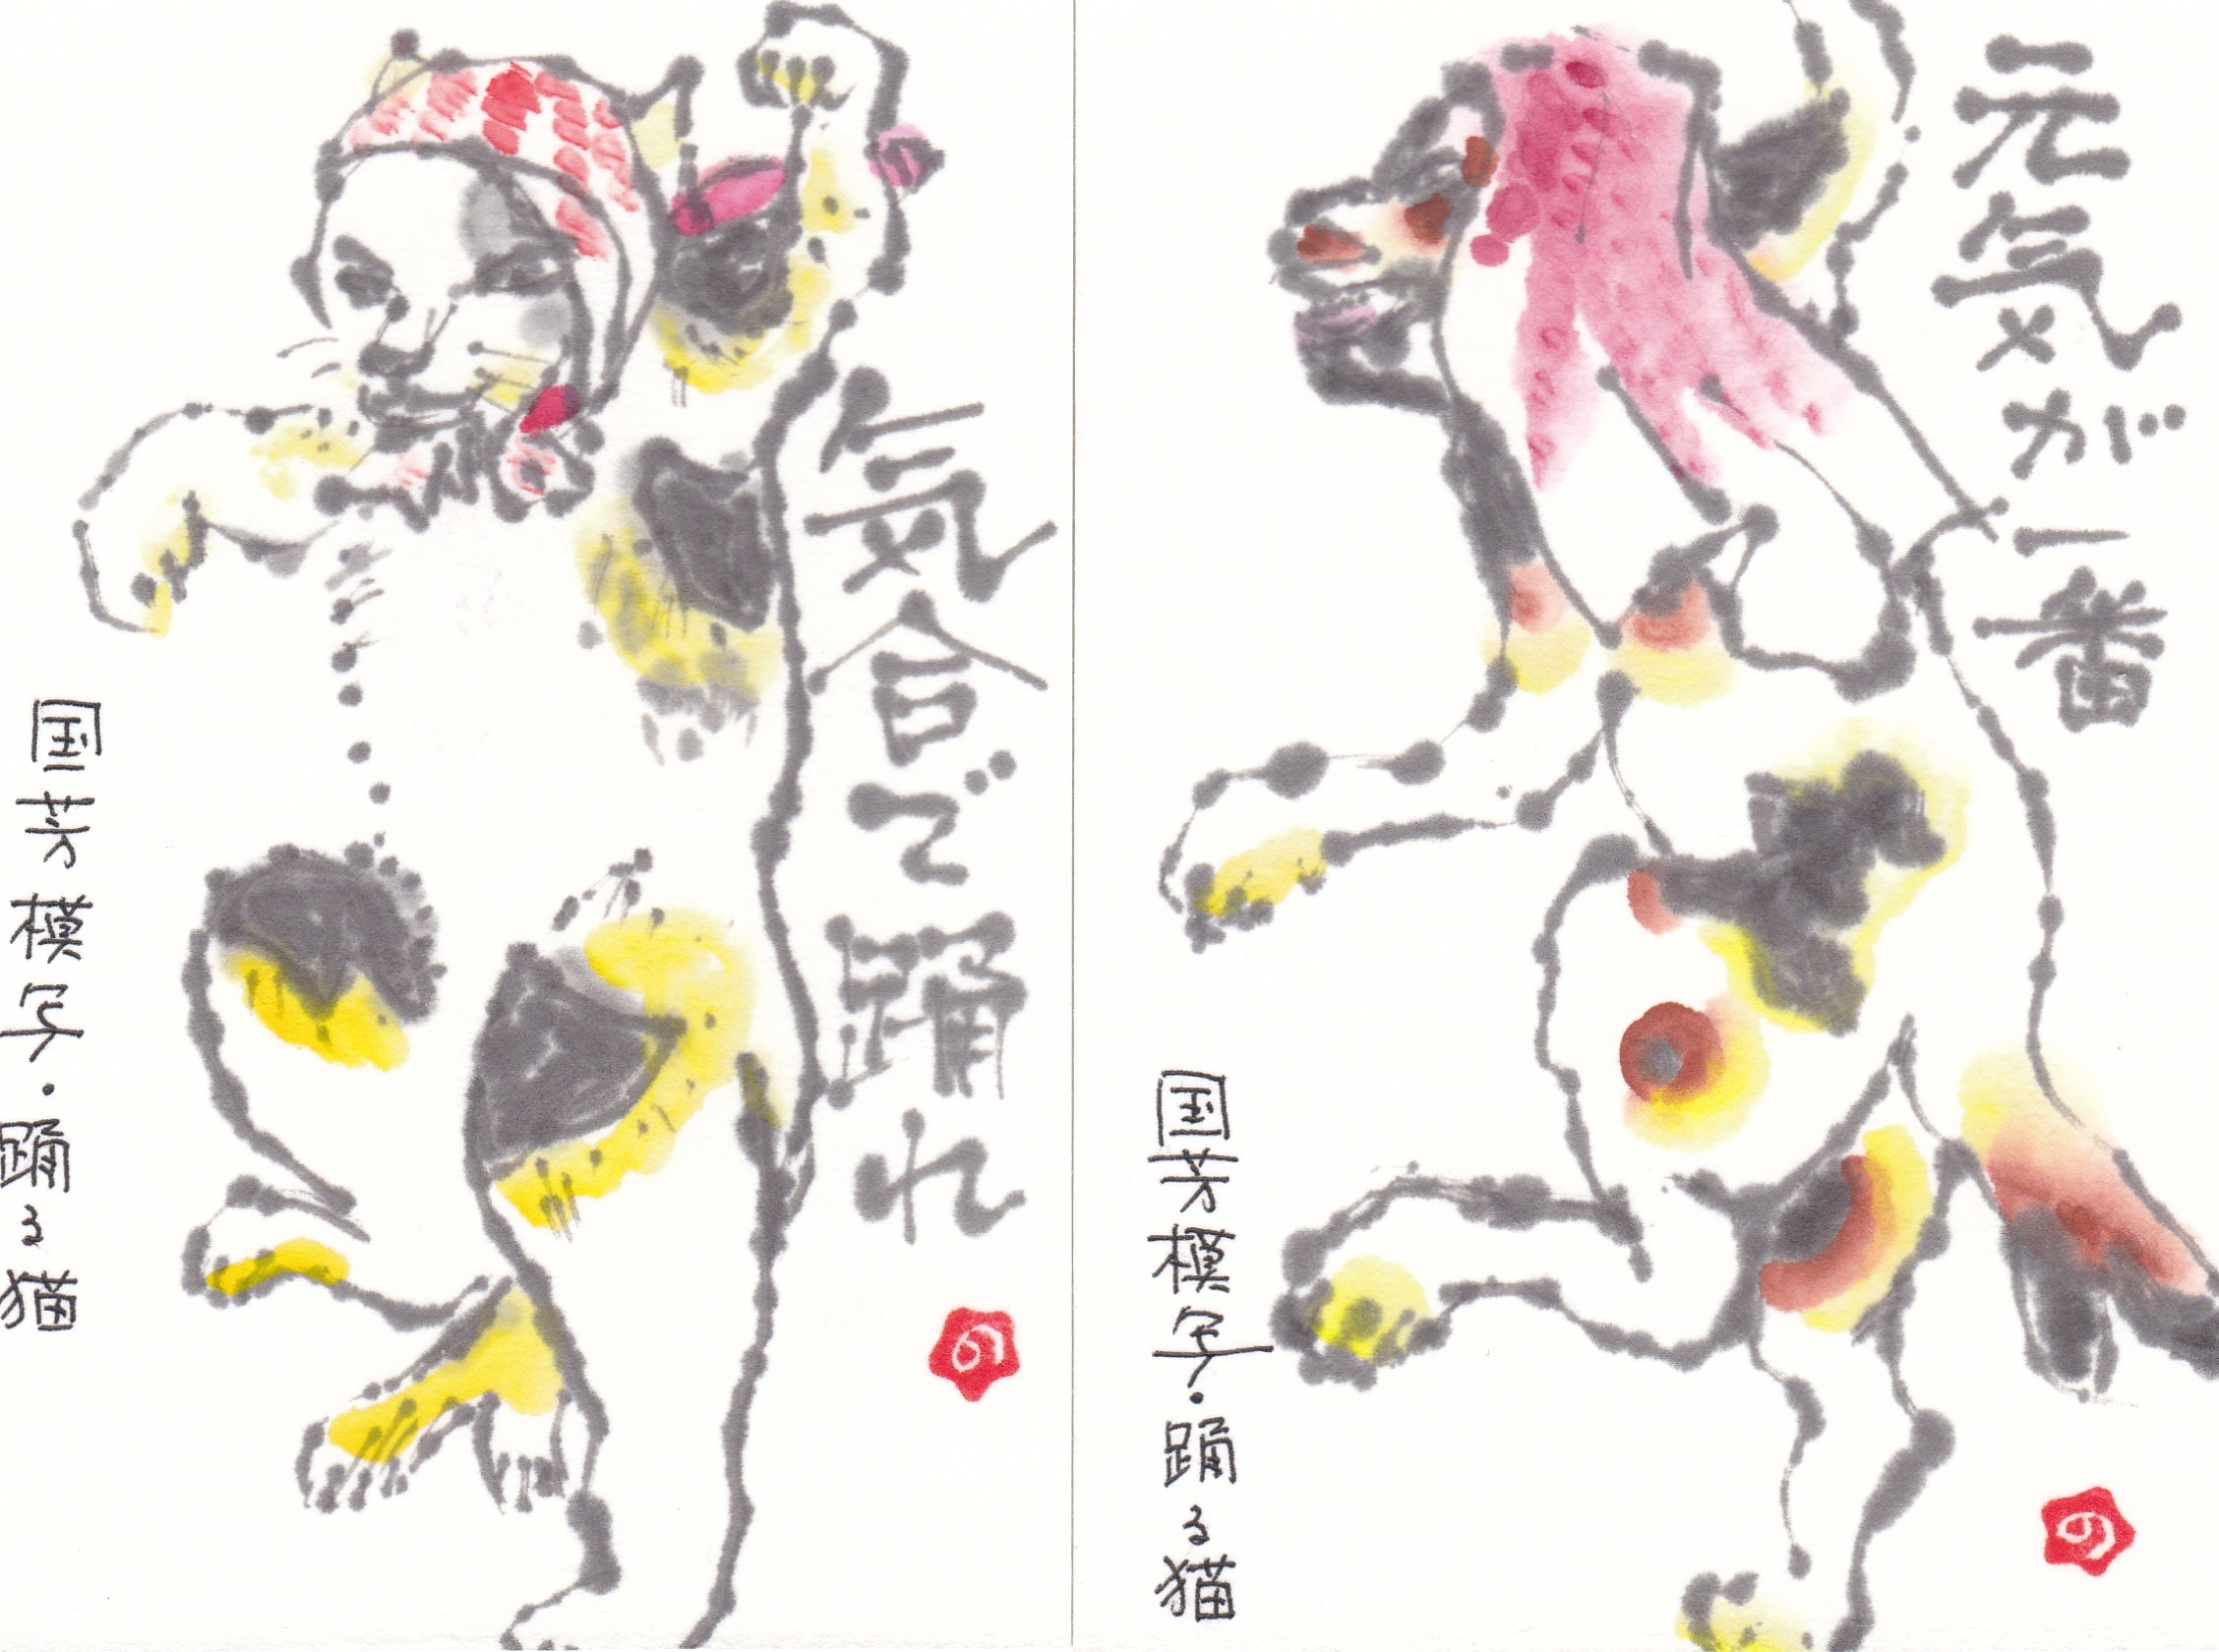 気合で踊れ
国芳模写・踊る猫
の
元気が一番
国芳模写・踊る猫
の